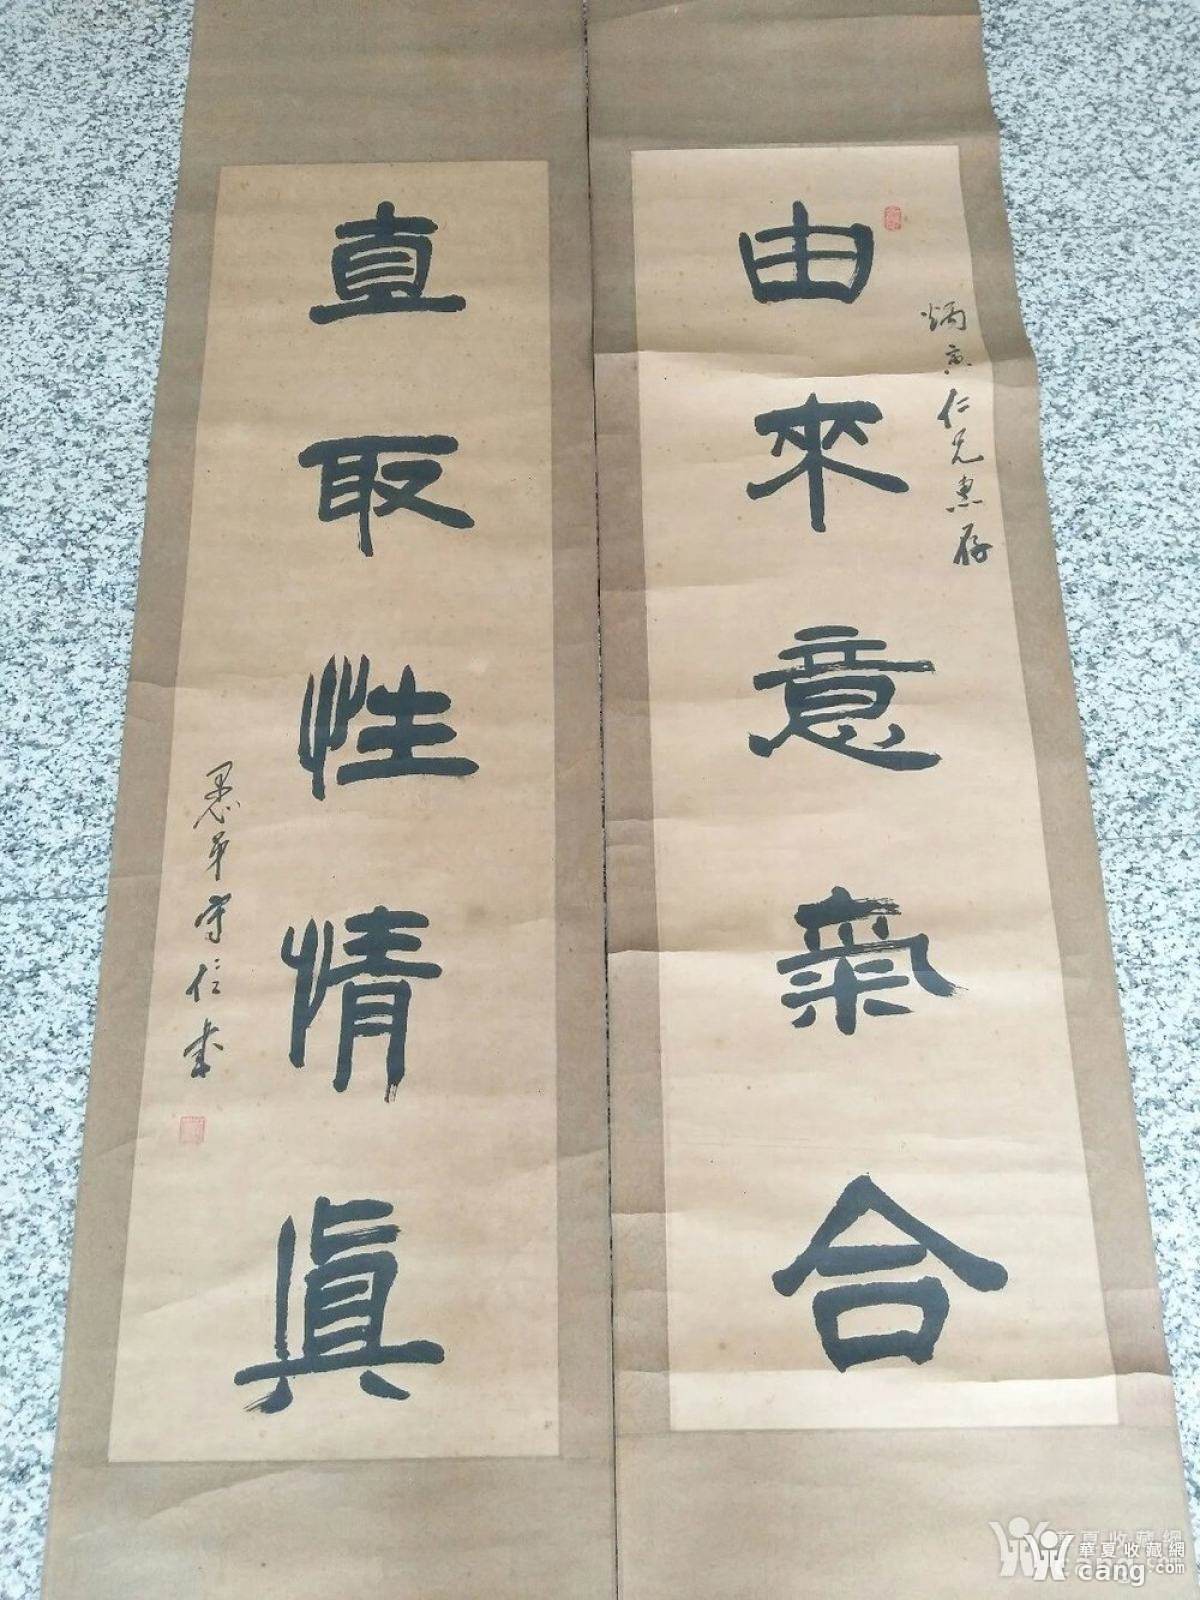 由來意氣合
炳寅仁兄惠存
直取性情眞
愚弟守信書
華夏收藏網
cang.com